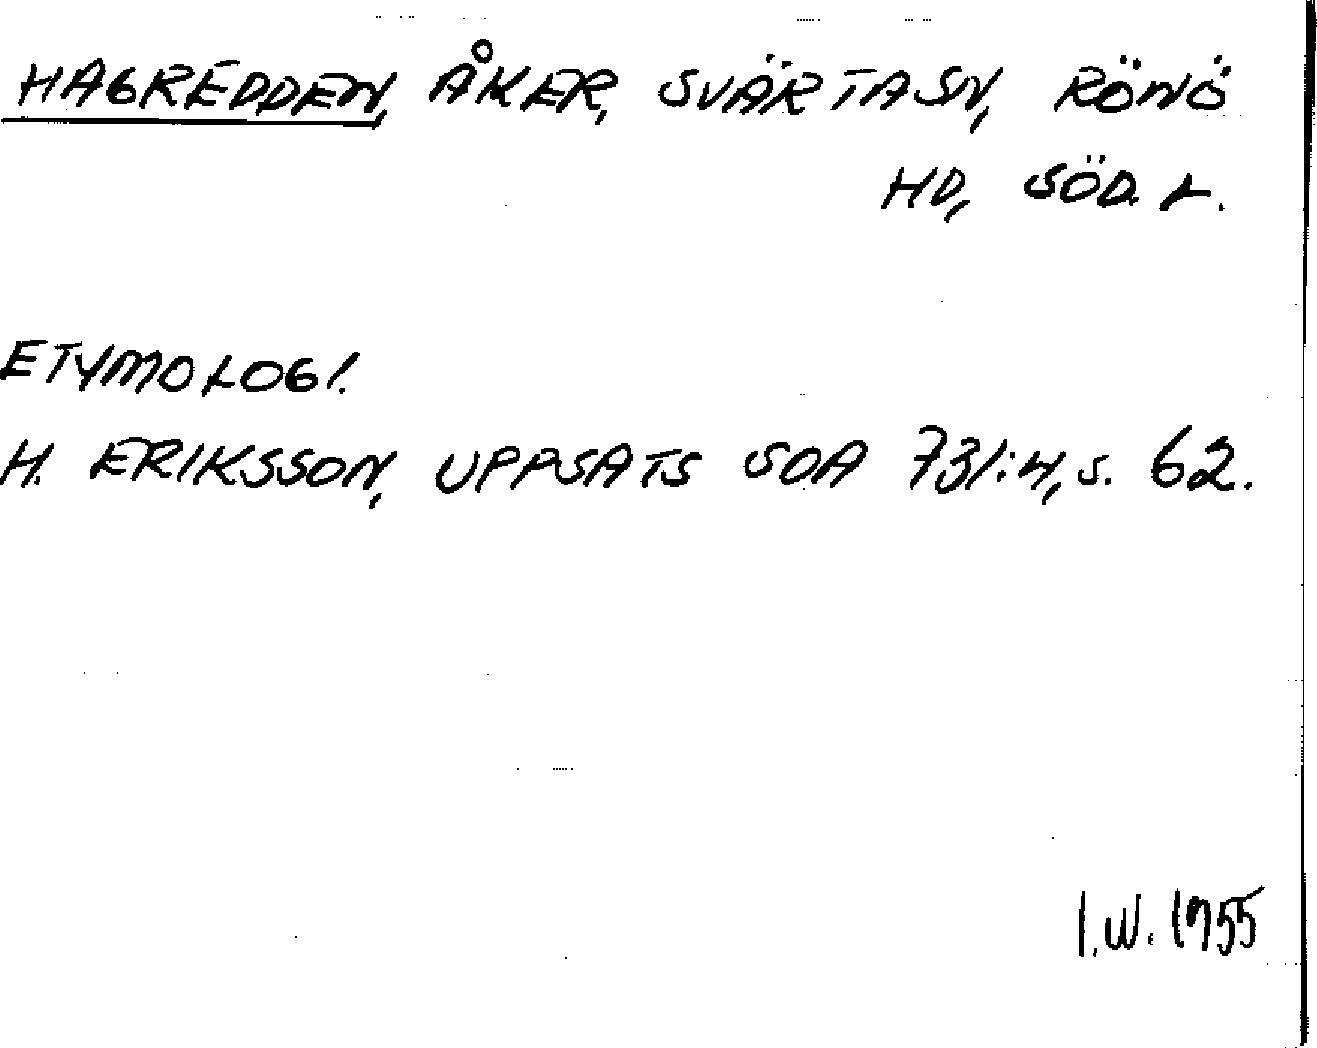 HAGREDDEN, ÅKER, SVÄRTA SN, RÖNÖ
HD, SÖD. L.
ETYMOLOGI.
H. ERIKSSON, UPPSATS SOA 731:4, S. 62.
I.W. 1955